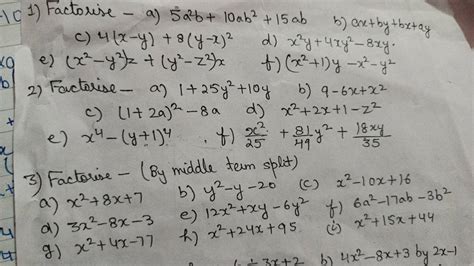 1) Factorise - a) 5a²b + 10ab² + 15ab b) ax+by+bx+ay
c) 4(x-y) + 8(y-x)² d) x²y+4xy²-8xy.
e) (x²-y²)z + (y²-z²)x f) (x²+1)y -x²-y²
2) Factorise - a) 1+25y²+10y b) 9-6x+x²
c) (1+2a)²-8a d) x²+2x+1-z²
e) x⁴-(y+1)⁴ f) x²/25 + 81/49 y² + 18xy/35
3) Factorise - (By middle term split)
a) x²+8x+7 b) y²-y-20 (c) x²-10x+16
d) 3x²-8x-3 e) 12x²+xy-6y² f) 6a²-17ab-3b²
g) x²+4x-77 h) x²+24x+95 (i) x²+15x+44
b) 4x²-8x+3 by 2x-1